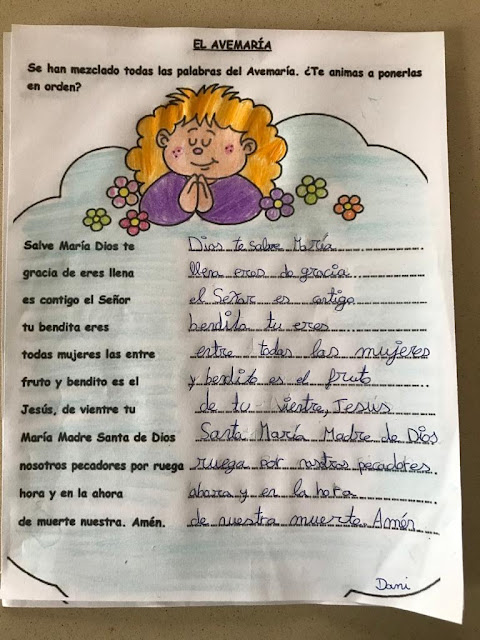 EL AVEMARÍA
Se han mezclado todas las palabras del Avemaría. ¿Te animas a ponerlas
en orden?
Salve María Dios te Dios te salve María
gracia de eres llena llena eres de gracia
es contigo el Señor el Señor es contigo
tu bendita eres bendita tu eres
todas mujeres las entre entre todas las mujeres
fruto y bendito es el y bendito es el fruto
Jesús, de vientre tu de tu vientre, Jesús
María Madre Santa de Dios Santa María Madre de Dios
nosotros pecadores por ruega ruega por nosotros pecadores
hora y en la ahora ahora y en la hora
de muerte nuestra. Amén. de nuestra muerte. Amén
Dani